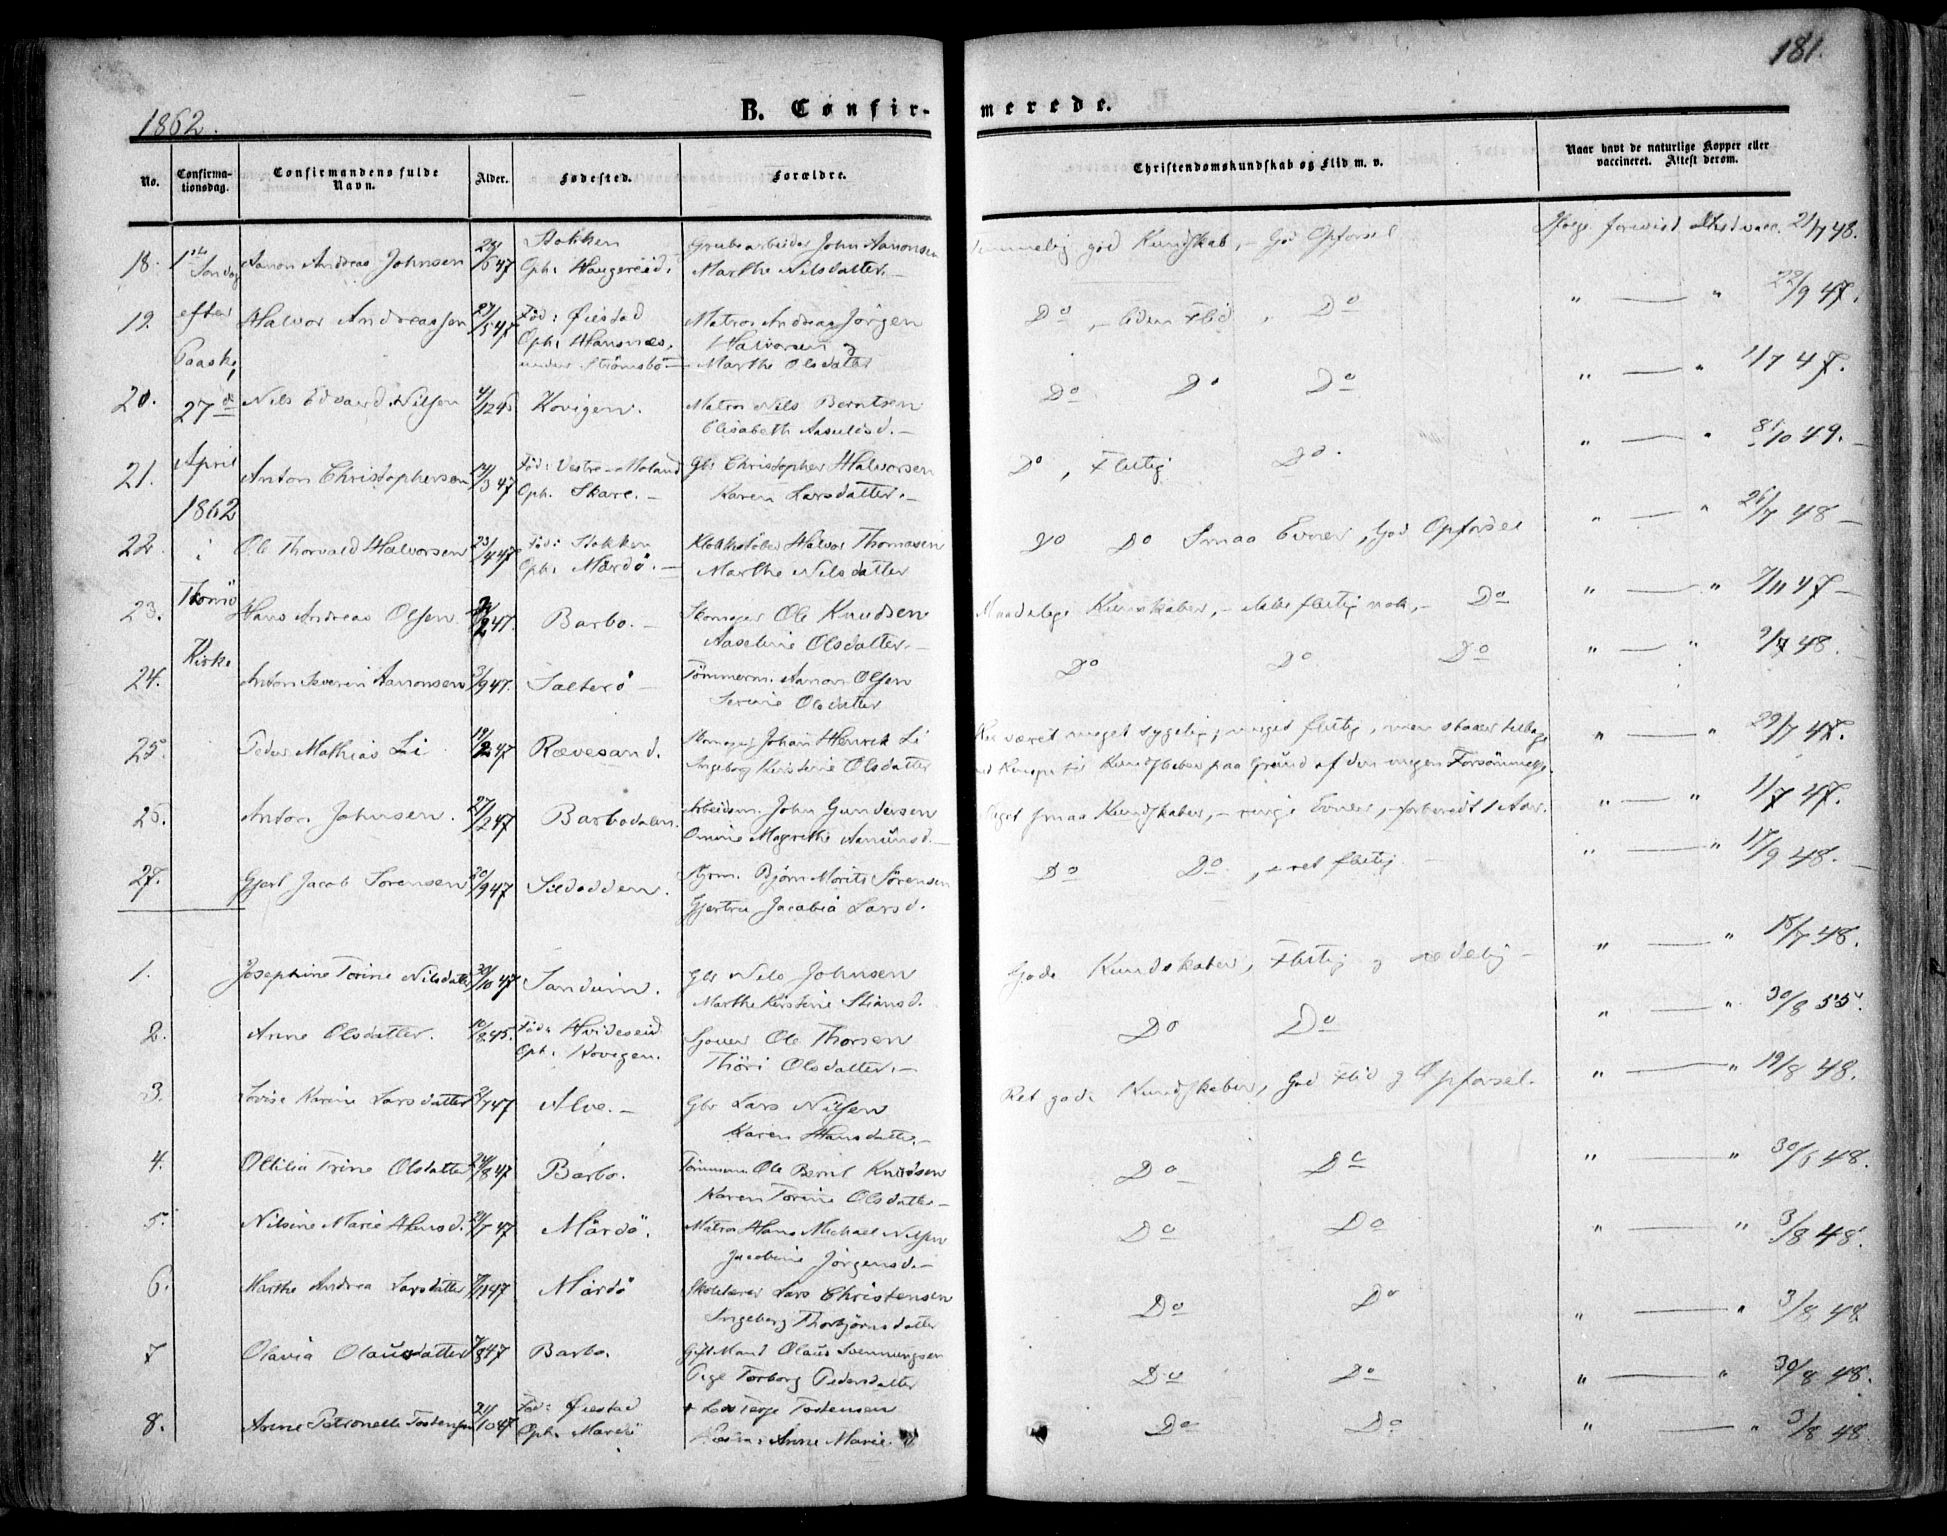 181.
1862.
B. Confir-
merede.
No.
Confirma-
tionsdag.
Confirmandens fulde
Navn.
Alder.
Fødested.
Forældre.
Christendomskundskab og Flid m. v.
Naar havt de naturlige Kopper eller
vaccineret. Attest derom.
1ste Søndag
efter
Paaske,
27de
April
1862
i
Tromö
Kirke
18. Aanon Andreas Johnsen 47 Stokken
Oph: Haugereid. Grubearbeider John Aanonsen
Marthe Nilsdatter.—
Temmelig god Kundskab, — God Opførsel 21/7 48.
19. Halvor Andreassen 27/5 47 Fød: Øiestad
Oph: Hansnæs,
under Strömsbo— Matros Andreas Jörgen
Halvorsen og
Marthe Olsdatter
Do, — liden Flid, Do " — " 22/9 47.
20. Nils Edvard Nilsen Kovigen. Matros Nils Berntsen
Elisabeth —
Do Do Do " — " 1/7 47.
21. Anton Christophersen 14/3 47 Fød: Vestre-Moland
Oph. Skare.— Gbr Christopher Halvorsen
Karen Larsdatter.—
Do, Flittig Do. " — " 8/10 49.—
22. Ole Thorvald Halvorsen 23/4 47 Fød: Stokken
Oph: Mærdö.— Halvor Thomasen
Marthe Nilsdatter
Do Do Smaa Evner, God Opførsel " — " 26/7 48—
23. Hans Andreas Olsen 47. Barbo.— Skomager Ole Knudsen
Aaseline Olsdatter.—
Maadelige Kundskaber, — ikke flittig nok, — Do " — " 7/11 47—
24. Anton Severin Aanonsen 3/9 47. Salterö— Tömmerm. Aanon Olsen
Serine Olsdatter
Do Do Do " — " 9/7 48.
25. Peder Mathias Li 19/2 47 Rævesand. Johan Henrik Li
Ingeborg Kirstine Olsdatter
været meget sygelig, meget flittig, men staaer tilbage
Kundskaber paa Grund af den megen Forsömmelse. " — " 29/7 47.
26. Anton Johnsen. 27/2 47 Barbodalen. Arbeidsm. John Gundersen
Magrethe Aanunsd.—
Meget smaa Kundskaber, — ringe Evner, forberedt 1 Aar. " — " 1/7 47.
27. Gjert Jacob Sörensen 30/9 47 Sildodden. Styrm. Björn Morits Sörensen
Gjertru Jacobia Larsd.
Do Do, ret flittig.— " — " 17/9 48.—
1. Josephine Torine Nilsdatter 30/10 47 Sandum. Gbr Nils Johnsen
Marthe Kirstine Stiansd.
Gode Kundskaber, Flittig og sædelig— " — " 18/7 48.
2. Anne Olsdatter. 10/8 45. Fød: Hvideseid
Oph: Kovigen. Ole Thorsen
Thöri Olsdatter.—
Do Do " — " 30/8 55.
3. Lovise Karine Larsdatter 2/7 47 Alve.— Gbr Lars Nilsen
Karen Hansdatter.—
Ret gode Kundskaber, God Flid og Opførsel. " — " 19/8 48.
4. Ottilia Trine Olsdatter 24/8 47 Barbo. Tömmerm Ole Bernt Knudsen
Karen Torine Olsdatter—
Do Do " — " 30/ 48.
5. Nilsine Marie Hansd. 21/7 47 Märdö. Matros Hans Michael Nilsen
Jacobine Jörgensd.—
Do Do " — " 3/8 48.
6. Marthe Andrea Larsdatter 47 Märdö Skolelærer Lars Christensen
Ingeborg Thorbjörnsdatter
Do Do " — " 3/8 48.
7 Olavia Olausdatter 47 Barbo. Gift Mand Olaus Svenningsen
Pige Torborg Pedersdatter
Do Do " — " 30/8 48.
8. Anne Petronelle Tostensen 21/10 47 Fød: Øiestad
Oph. Mærdö Terje Tostensen
Anne Marie
Do Do " — " 3/8 48.